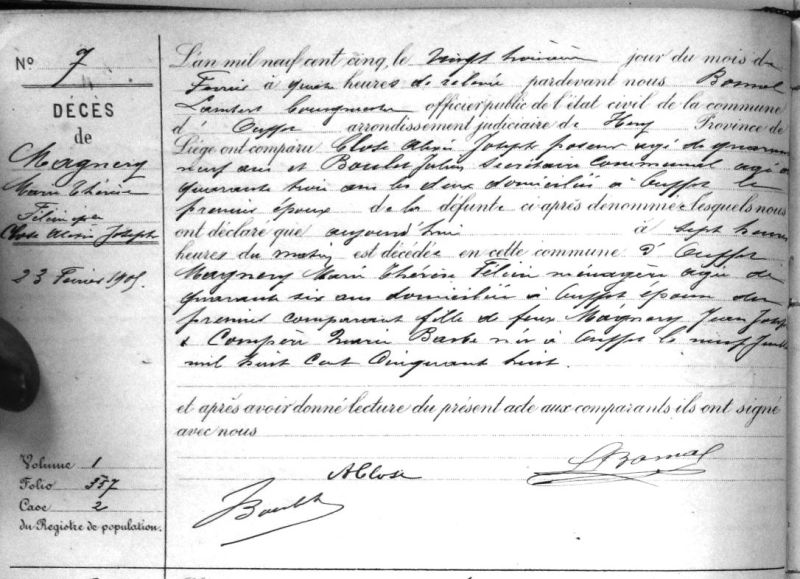 N° 7
DÉCÈS
de
Magnery
Marie Thérèse
Félicie
épse
Close Alexis Joseph
23 Février 1905.
Volume 1
Folio 357
Case 2
du Registre de population.
L'an mil neuf cent cinq, le vingt troisième jour du mois de
Février à quatre heures de relevée pardevant nous Bomal
Lambert bourgmestre officier public de l'état civil de la commune
d' Ouffet arrondissement judiciaire de Huy Province de
Liége ont comparu Close Alexis Joseph poseur agé de quarante
neuf ans et Boulet Julien Secrétaire Communal agé de
quarante trois ans les deux domiciliés à Ouffet le
premier époux de la défunte ci-après denommée lesquels nous
ont déclaré que aujourd'hui à sept heures
heures du matin est décédée en cette commune d' Ouffet
Magnery Marie Thérèse Félicie ménagère agée de
quarante six ans domiciliée à Ouffet épouse du
premier comparant fille de feux Magnery Jean Joseph
& Compère Marie Barbe née à Ouffet le neuf
mil huit cent cinquante huit.
et après avoir donné lecture du présent acte aux comparants, ils ont signé
avec nous
A Close
LBomal
JBoulet